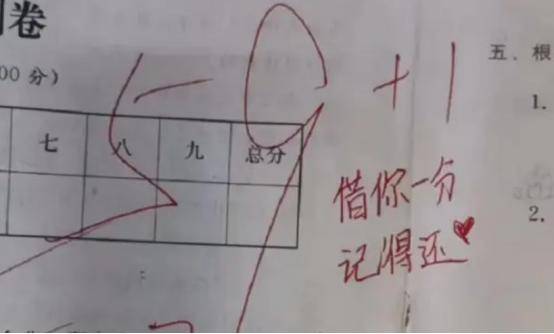 卷
00分)
59+1
七 八 九 总分
借你一分
记得还
五、根
1.
2.